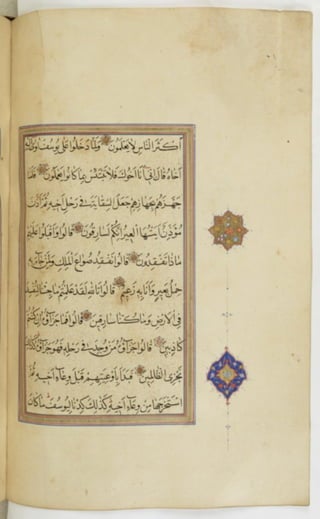 أَكْثَرَ النَّاسِ لَا يَعْلَمُونَ وَلَمَّا دَخَلُوا عَلَى يُوسُفَ آوَى إِلَيْهِ
أَخَاهُ قَالَ إِنِّي أَنَا أَخُوكَ فَلَا تَبْتَئِسْ بِمَا كَانُوا يَعْمَلُونَ فَلَمَّا
جَهَّزَهُمْ بِجَهَازِهِمْ جَعَلَ السِّقَايَةَ فِي رَحْلِ أَخِيهِ ثُمَّ أَذَّنَ
مُؤَذِّنٌ أَيَّتُهَا الْعِيرُ إِنَّكُمْ لَسَارِقُونَ قَالُوا وَأَقْبَلُوا عَلَيْهِمْ
مَاذَا تَفْقِدُونَ قَالُوا نَفْقِدُ صُوَاعَ الْمَلِكِ وَلِمَنْ جَاءَ بِهِ
حِمْلُ بَعِيرٍ وَأَنَا بِهِ زَعِيمٌ قَالُوا تَاللَّهِ لَقَدْ عَلِمْتُمْ مَا جِئْنَا لِنُفْسِدَ
فِي الْأَرْضِ وَمَا كُنَّا سَارِقِينَ قَالُوا فَمَا جَزَاؤُهُ إِنْ كُنْتُمْ
كَاذِبِينَ قَالُوا جَزَاؤُهُ مَنْ وُجِدَ فِي رَحْلِهِ فَهُوَ جَزَاؤُهُ كَذَلِكَ
نَجْزِي الظَّالِمِينَ فَبَدَأَ بِأَوْعِيَتِهِمْ قَبْلَ وِعَاءِ أَخِيهِ ثُمَّ
اسْتَخْرَجَهَا مِنْ وِعَاءِ أَخِيهِ كَذَلِكَ كِدْنَا لِيُوسُفَ مَا كَانَ